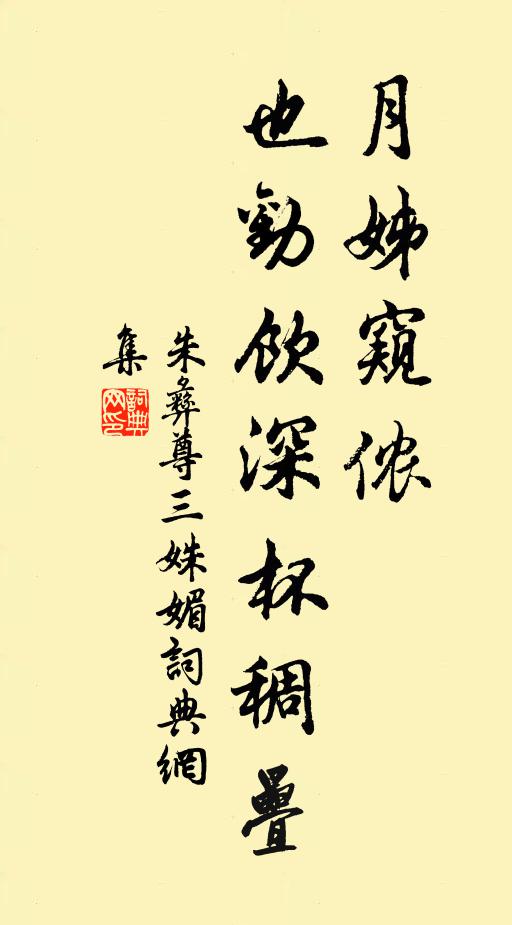 月姊窺侬
也勸飲深杯稠疊
朱彝尊三姝媚詞典網
集
詞典網印